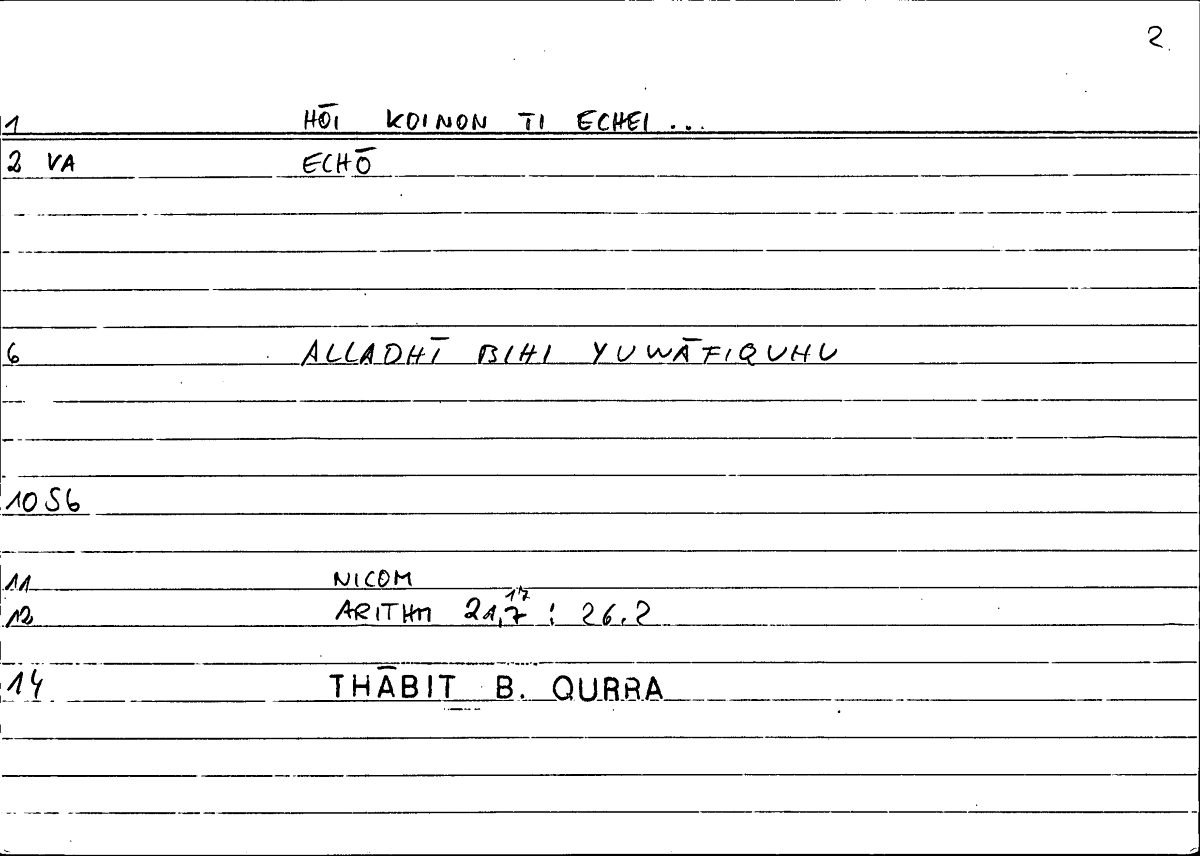 2
1 HŌI KOINON TI ECHEI ...
2 VA ECHŌ
6 ALLADHĪ BIHI YUWĀFIQUHU
10 S6
11 NICOM
17
12 ARITHM 21,7 : 26.2
14 THĀBIT B. QURRA